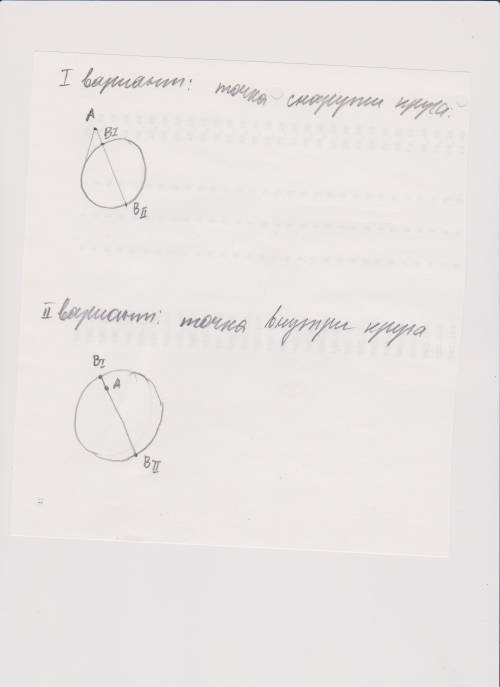 I вариант: точка снаружи круга.
A
BI
BII
II вариант: точка внутри круга
BI
A
BII